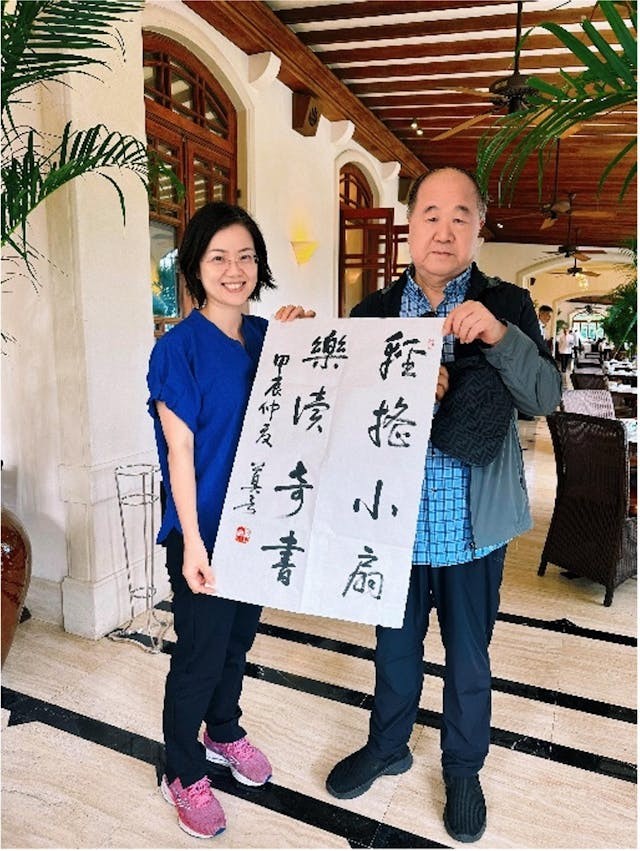 輕搖小扇
樂讀奇書
甲辰仲夏
莫言